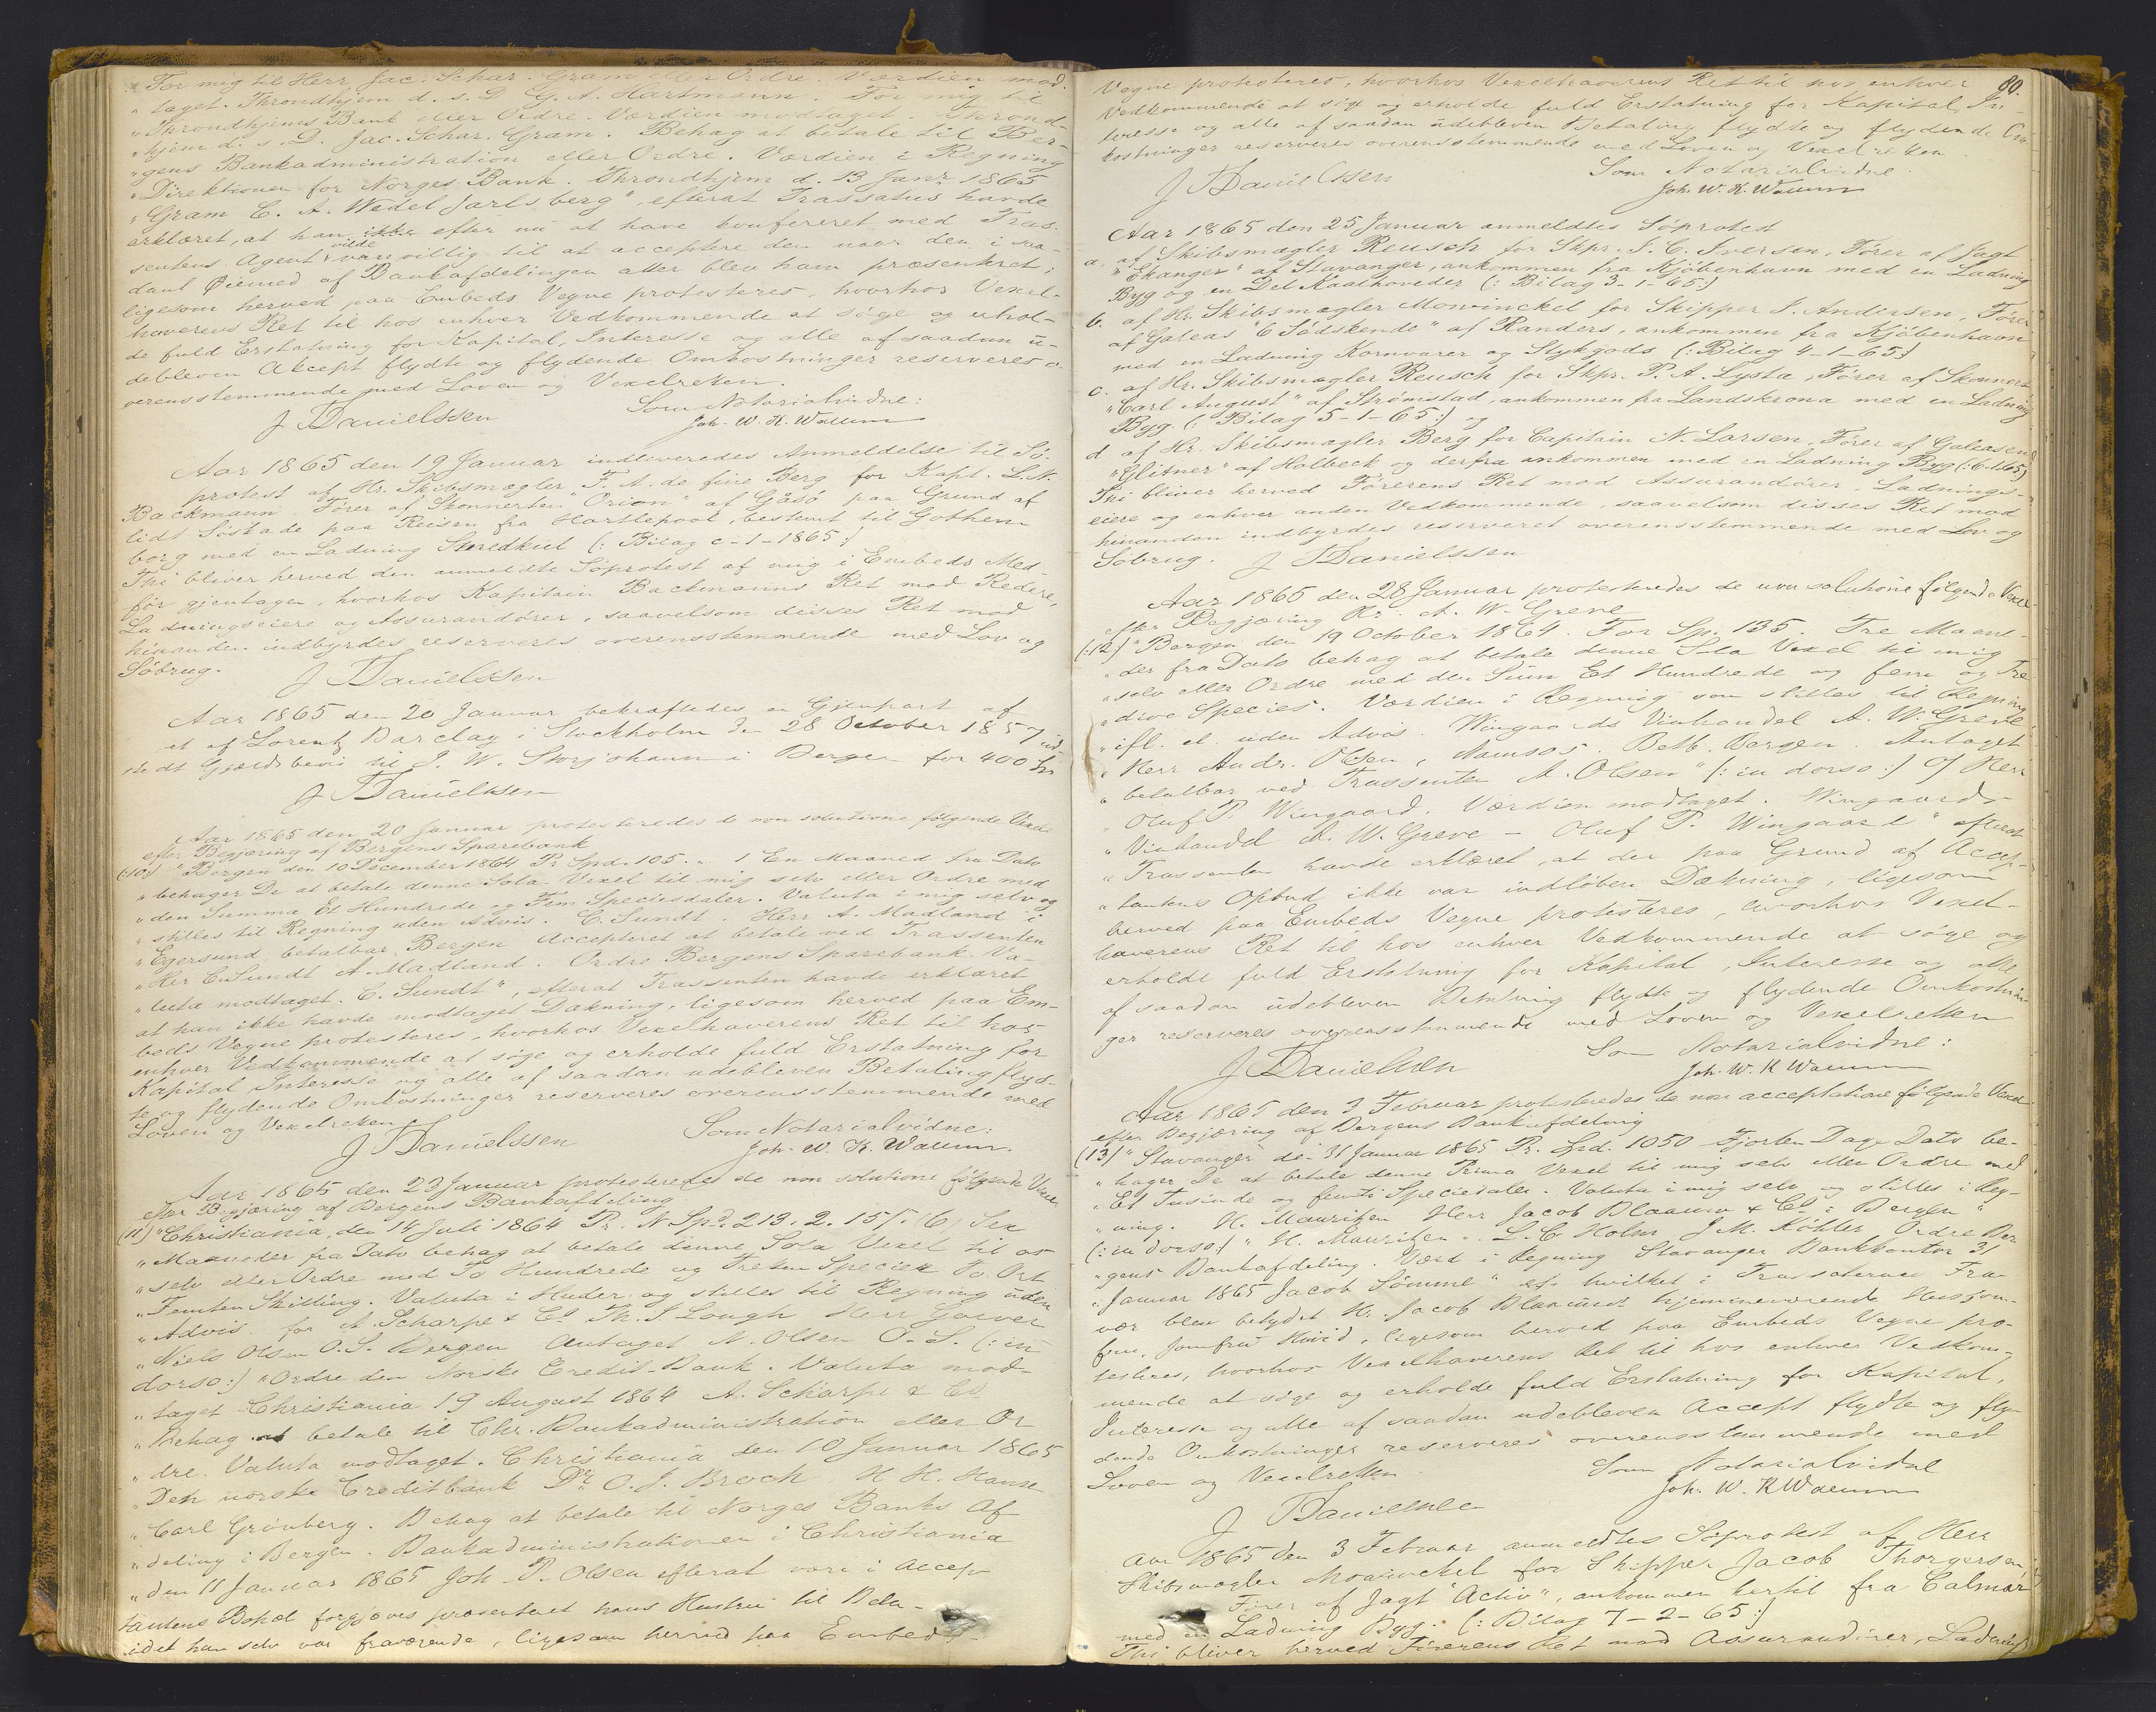 "For mig til Herr Jac. Schar. Gram eller Ordre. Værdien mod.
"taget. Throndhjem d. s. D. G. A. Hartmann. For mig til
"Throndhjems Bank eller Ordre. Værdien modtaget. Thrond-
"hjem d. s. D. Jac. Schar. Gram. Behag at betale til Ber-
"gens Bankadministration eller Ordre. Værdien i Regning
"Direktionen for Norges Bank. Throndhjem d. 13 Janr 1865
"Gram C. A. Wedel Jarlsberg", efterat Trassatus havde
erklæret, at han ikke efter nu at have konfereret med Tras-
sentens Agent vilde være villig til at acceptere den naar den i saa-
dant Øiemed af Bankafdelingen atter blev ham præsenteret;
ligesom herved paa Embeds Vegne protesteres, hvorhos Vexel-
haverens Ret til hos enhver Vedkommende at søge og erhol-
de fuld Erstatning for Kapital, Interesse og alle af saadan u-
debleven Accept flydte og flydende Omkostninger reserveres o-
verensstemmende med Loven og Vexelretten.
J Danielssen Som Notarialvidne:
Joh. W. K. Wallum
Aar 1865 den 19 Januar indleveredes Anmeldelse til Sö-
protest af Hr. Skibsmægler F. A. de fine Berg for Kapt. L. N.
Backmann Fører af Skonnerten "Orion" af Gåsö paa Grund af
lidt Söskade paa Reisen fra Hartlepool, bestemt til Gothen-
borg med en Ladning Smedkul (: Bilag c-1-1865 :)
Thi bliver herved den anmeldte Söprotest af mig i Embeds Med-
för gjentagen, hvorhos Kapitain Backmanns Ret mod Redere,
Ladningseiere og Assurandörer, saavelsom disses Ret mod
hinanden indbyrdes reserveres overensstemmende med Lov og
Söbrug.
J Danielssen
Aar 1865 den 20 Januar bekræftedes en Gjenpart af
et af Lorentz Barclay i Stockholm den 28 October 1857 ud-
stedt Gjældsbevis til J. W. Storjohann i Bergen for 400
J Danielssen
Aar 1865 den 20 Januar protesteredes de non solutione følgende Vexel
efter Begjæring af Bergens Sparebank
(10) "Bergen den 10 December 1864 Pr Spd. 105. " 1 En Maaned fra Dato
"behager De at betale denne Sola-Vexel til mig selv eller Ordre med
"den Summa Et Hundrede og Fem Speciesdaler. Valuta i mig selv og
"stilles til Regning uden Advis. C. Sundt. Herr A. Madland i
"Egersund betalbar Bergen Accepteret at betale ved Trassenten
"Her C. Sundt A. Madland. Ordre Bergens Sparebank. Va-
"luta modtaget. C. Sundt", efterat Trassenten havde erklæret
at han ikke havde modtaget Dækning, ligesom herved paa Em-
beds Vegne protesteres, hvorhos Vexelhaverens Ret til hos
enhver Vedkommende at søge og erholde fuld Erstatning for
Kapital Interesse og alle af saadan udebleven Betaling flyd-
te og flydende Omkostninger reserveres overensstemmende med
Loven og Vexelretten
J Danielssen Som Notarialvidne:
Joh. W. K. Wallum.
Aar 1865 den 23 Januar protesteredes de non solutione følgende Vexel
efter Begjæring af Bergens Bankafdeling
(11) "Christiania, den 14 Juli 1864 Pr. N. Spd. 213. 2. 15/. (6) Sex
"Maaneder fra Dato behag at betale denne Sola Vexel til os
"selv eller Ordre med To Hundrede og Tretten Species To Ort
"Femten Skilling. Valuta i Huder og stilles til Regning uden
"Advis for A. Scharpe & Co Th. J. Lough Herr Garver
"Niels Olsen O. S. Bergen Antaget N. Olsen O. S. (: in
dorso:) "Ordre den Norske Credit-Bank. Valuta mod-
"taget Christiania 19 August 1864 A. Scharpe & Co
"Behag at betale til Chr. Bankadministration eller Or
"dre. Valuta modtaget. Christiania den 10 Januar 1865
"Den norske Creditbank Dr. O. J. Broch H. H. Hansen
"Carl Grönberg. Behag at betale til Norges Banks Af
"deling i Bergen. Bankadministrationen i Christiania
"den 11 Januar 1865 Joh. P. Olsen efterat være i Accep
tantens Bopæl forgjæves præsenteret hans Hustru til Beta-
idet han selv var fraværende, ligesom herved paa Embeds-
80.
Vegne protesteres, hvorhos Vexelhaverens Ret til hos enhver
Vedkommende at søge og erholde fuld Erstatning for Kapital, In-
teresse og alle af saadan udebleven Betaling flydte og flydende Om-
kostninger reserveres overensstemmende med Loven og Vexelretten
J Danielssen Som Notarialvidne.
Joh. W. K. Wallum
Aar 1865 den 25 Januar anmeldtes Söprotest
a. af Skibsmægler Reusch for Skpr. J. C. Iversen, Fører af Jagt
"Ekanger" af Stavanger, ankommen fra Kjöbenhavn med en Ladning
Byg og en Del Kaalhoveder (: Bilag 3-1-65:)
b. af Hr. Skibsmægler Mowinckel for Skipper S. Andersen, Fører
af Galeas "6 Södskende" af Randers, ankommen fra Kjöbenhavn
med en Ladning Kornvarer og Stykgods (: Bilag 4-1-65:)
c. af Hr. Skibsmægler Reusch for Skpr. P. A. Lysta, Fører af Skonnert
"Carl August" af Strömstad, ankommen fra Landskrona med en Ladning
Byg. (: Bilag 5-1-65:) og
d af Hr. Skibsmægler Berg for Capitain N. Larsen, Fører af Galeasen
"Glitner" af Holbeck og derfra ankommen med en Ladning Byg (:6-1-65)
Thi bliver herved Førerens Ret mod Assurandörer, Ladnings-
eiere og enhver anden Vedkommende, saavelsom disses Ret mod
hinanden indbyrdes reserveret overensstemmende med Lov og
Söbrug. J Danielssen
Aar 1865 den 28 Januar protesteredes de non solutione følgende Vexel
efter Begjæring Hr. A. W. Greve
(:12) "Bergen den 19 October 1864. For Sp. 135. Tre Maane-
"der fra Dato behag at betale denne Sola Vexel til mig
"selv eller Ordre med den Sum Et Hundrede og fem og Tre
"dive Species. Værdien i Regning som stilles til Regning
"ifl. el. uden Advis. Wingaards Vinhandel A. W. Greve
"Herr Andr. Olsen, Namsos. Betb. Bergen. Antaget
"betalbar ved Trassenten A. Olsen" (: in dorso:) Herr
"Oluf P. Wingaard. Værdien modtaget. Wingaards
"Vinhandel A. W. Greve - Oluf P. Wingaard" efterat
"Trassenten havde erklæret, at der paa Grund af Accep-
"tantens Opbud ikke var indløben Dækning, ligesom
herved paa Embeds Vegne protesteres, hvorhos Vexel-
haverens Ret til hos enhver Vedkommende at søge og
erholde fuld Erstatning for Kapital, Interesse og alle
af saadan udebleven Betaling flydte og flydende Omkostnin-
ger reserveres overensstemmende med Loven og Vexelretten
J Danielssen Som Notarialvidne:
Joh. W. K Wallum
Aar 1865 den 3 Februar protesteredes de non acceptatione følgende Vexel
efter Begjæring af Bergens Bankafdeling
(13) "Stavanger de 31 Januar 1865 Pr. Spd. 1050 Fjorten Dage Dato be-
"hager De at betale denne Prima Vexel til mig selv eller Ordre med
"Et Tusinde og femti Speciedaler. Valuta i mig selv og stilles i Reg-
"ning. H. Mauritzen Herr Jacob Blaauw & Co i Bergen"
(: in dorso:) "H. Mauritzen. L. C. Holm J. M. Köhler Ordre Ber
"gens Bankafdeling. Værd i Regning Stavanger Bankkontor 31
"Januar 1865 Jacob Sömme" hvilket i Trassaternes Fra-
vær blev betydet Hr. Jacob Blaauws hjemmeværende Husjom-
fru, Jomfru Hviid, ligesom herved paa Embeds Vegne pro-
testeres, hvorhos Vexelhaverens Ret til hos enhver Vedkom-
mende at søge og erholde fuld Erstatning for Kapital,
Interesse og alle af saadan udebleven Accept flydte og fly-
dende Omkostninger reserveres overensstemmende med
Loven og Vexelretten Som Notarialvidne
J Danielssen Joh. W. K Wallum
Aar 1865 den 3 Februar anmeldtes Söprotest af Herr
Skibsmægler Mowinckel for Skipper Jacob Thorgersen
Fører af Jagt "Activ", ankommen hertil fra Calmar
med en Ladning Byg. (: Bilag 7-2-65:)
Thi bliver herved Førerens Ret mod Assurandører, Ladnings